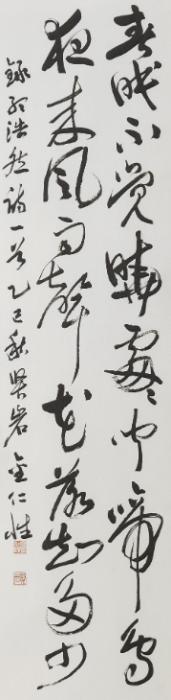 春眠不覺曉處々聞啼鳥
夜來風雨聲花落知多少
錄孟浩然詩一首乙巳秋 岩 金仁性